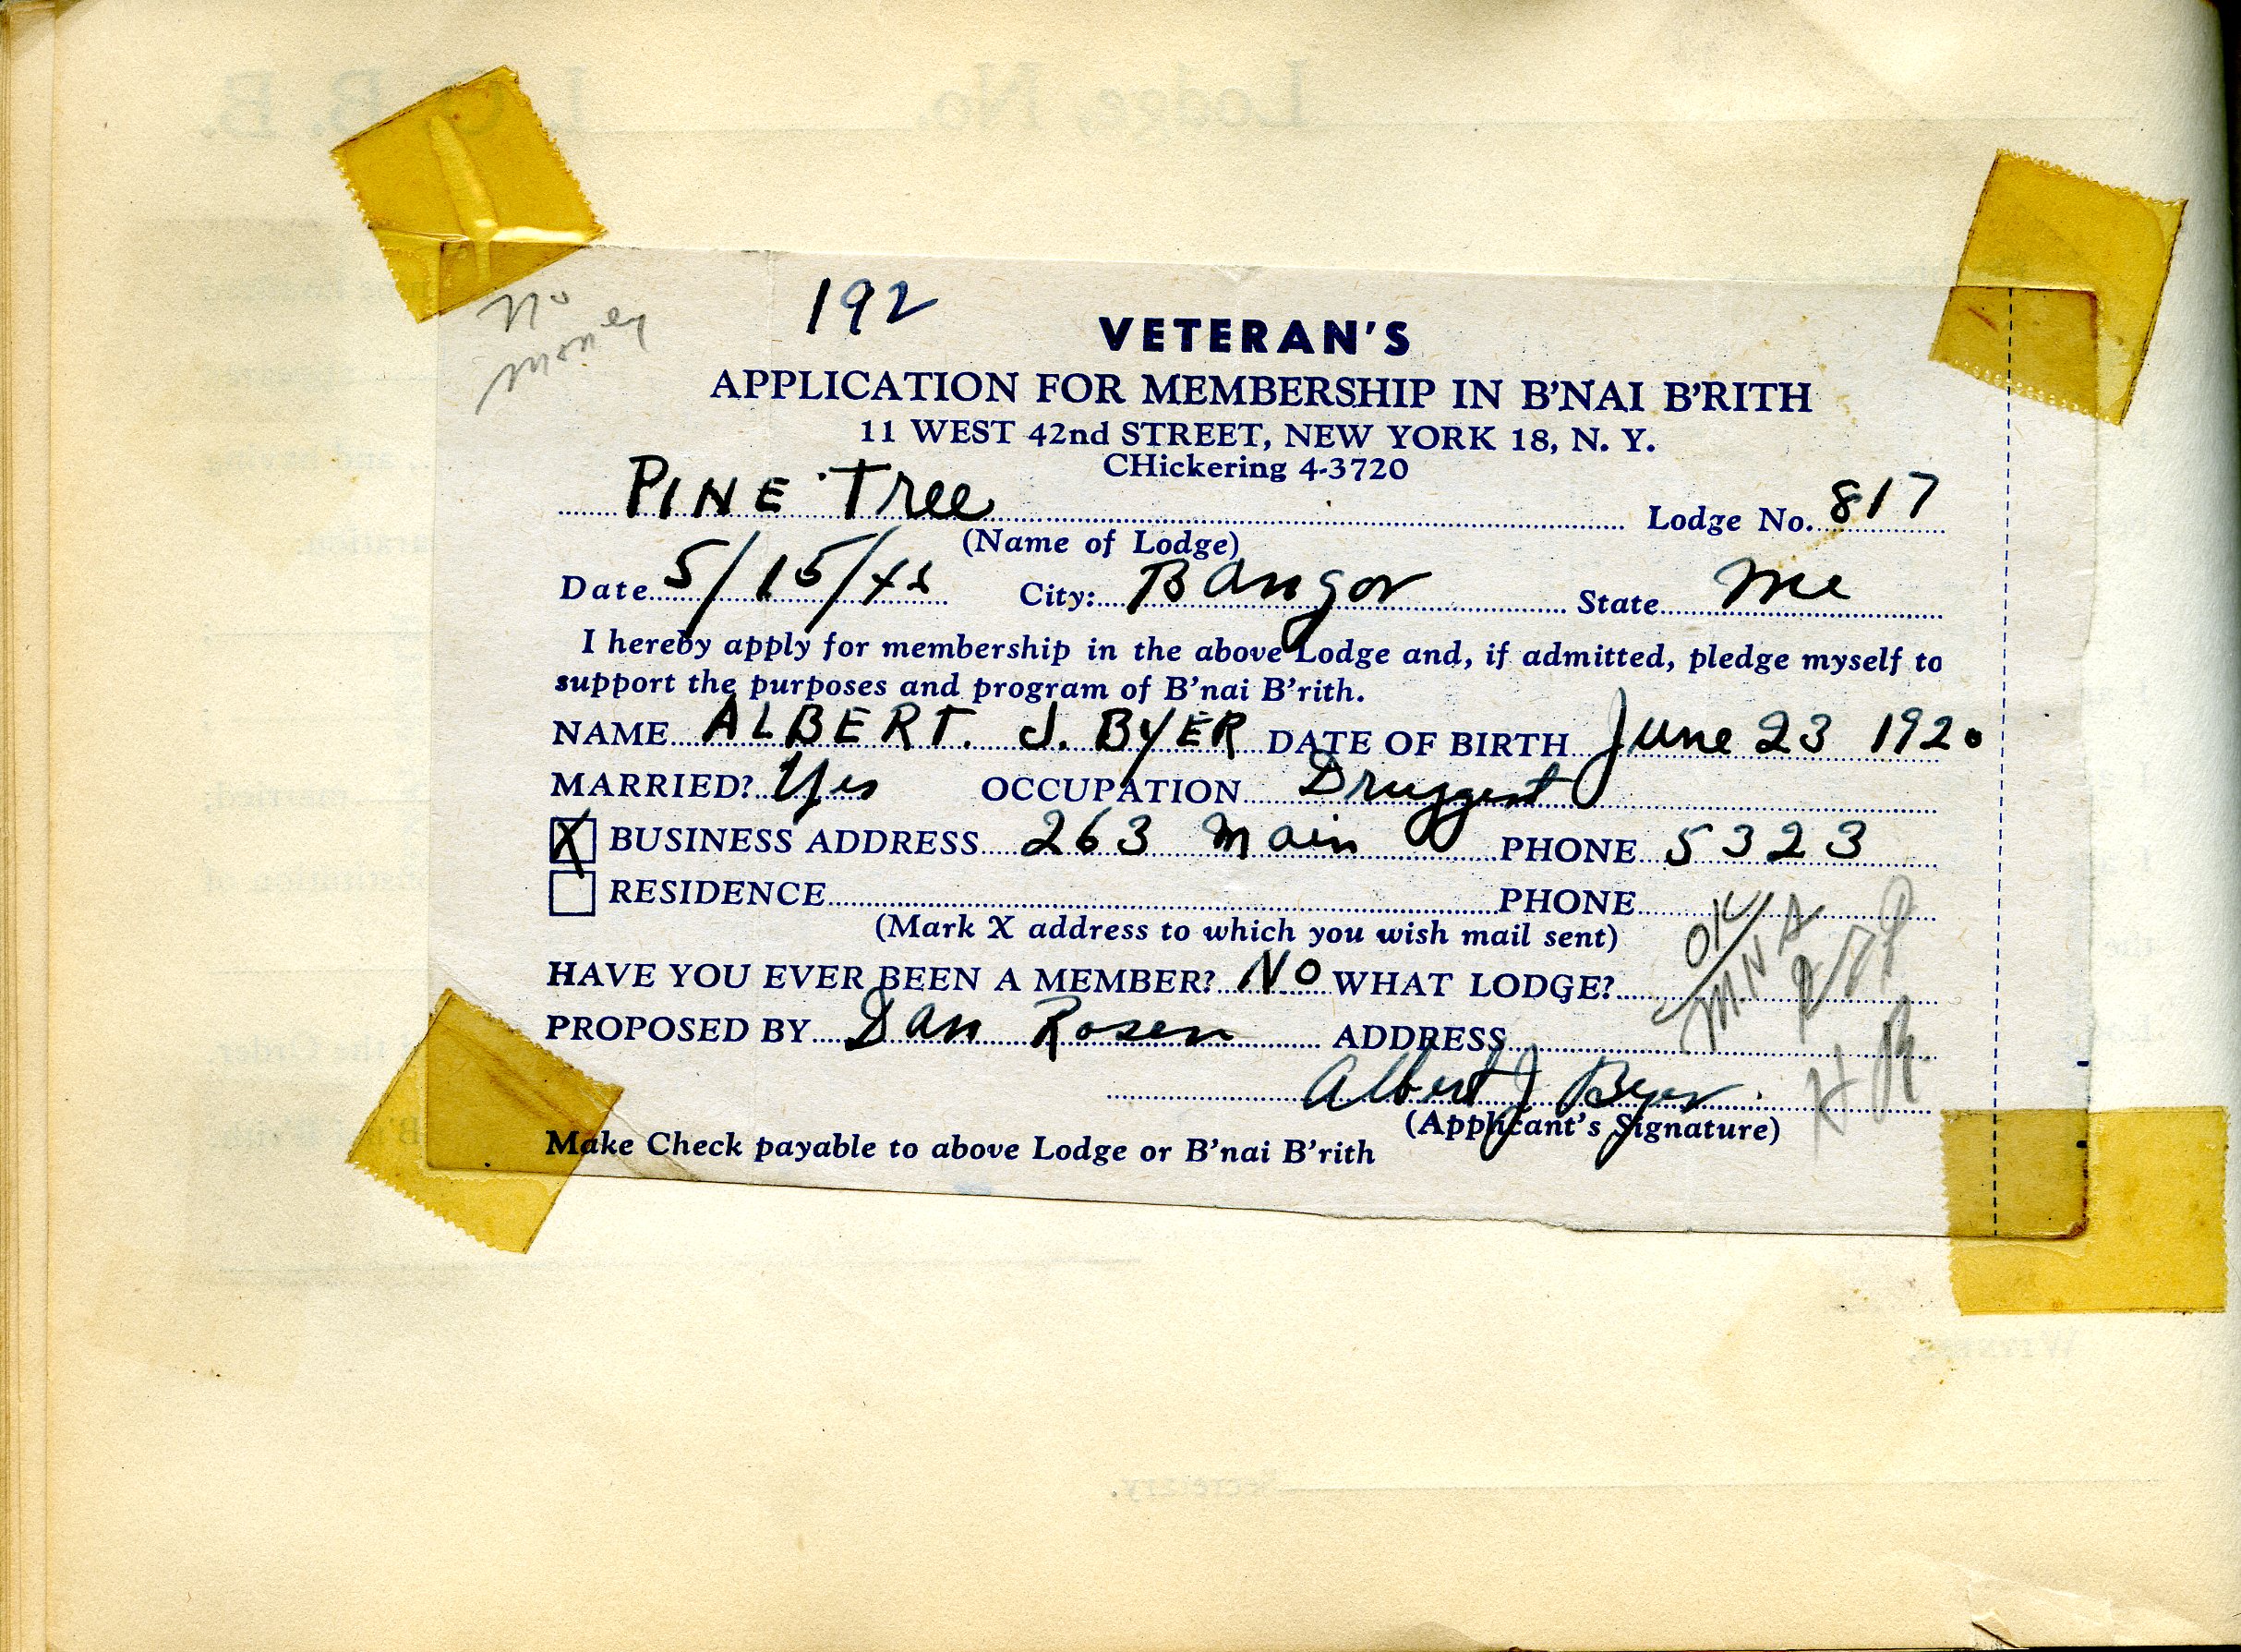 No
money
192
VETERAN'S
APPLICATION FOR MEMBERSHIP IN B'NAI B'RITH
11 WEST 42nd STREET, NEW YORK 18, N. Y.
CHickering 4-3720
PINE Tree Lodge No. 817
(Name of Lodge)
Date 5/15/ City: Bangor State Me
I hereby apply for membership in the above Lodge and, if admitted, pledge myself to
support the purposes and program of B'nai B'rith.
NAME ALBERT. J. BYER DATE OF BIRTH June 23 1920
MARRIED? Yes OCCUPATION Druggest
X BUSINESS ADDRESS 263 Main PHONE 5323
RESIDENCE PHONE
(Mark X address to which you wish mail sent)
OK
HAVE YOU EVER BEEN A MEMBER? NO WHAT LODGE?
PROPOSED BY Dan Rosen ADDRESS
Albert J Byer
(Applicant's Signature)
Make Check payable to above Lodge or B'nai B'rith
Lodge, No. I. O. B. B.
Secretary.